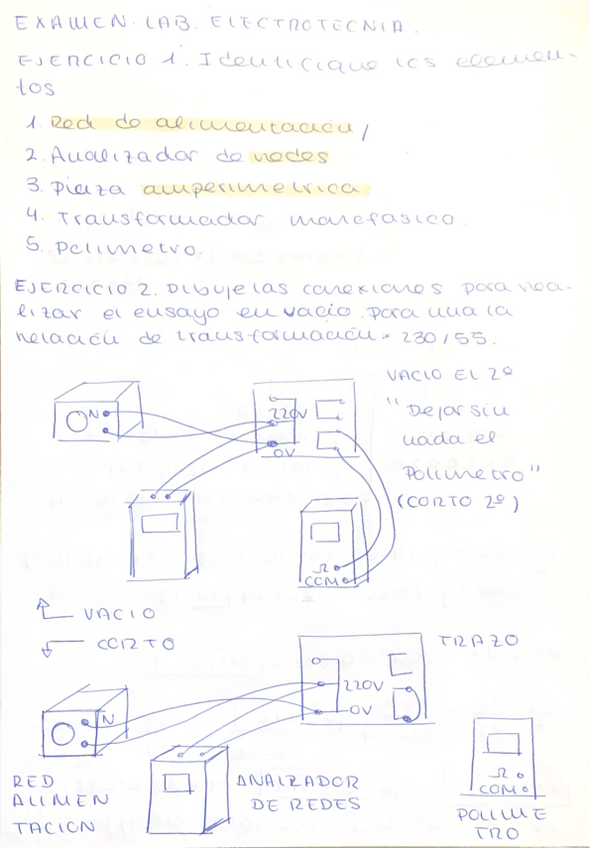 EXAMEN. LAB. ELECTROTECNIA.
EJERCICIO 1. Identifique los elemen-
tos
1. Red de alimentación /
2. Analizador de redes
3. Pinza amperimetrica
4. Transformador monofásico.
5. Polimetro.
EJERCICIO 2. Dibuje las conexiones para rea-
lizar el ensayo en vacío. para una la
relación de transformación = 230/55.
VACIO EL 2º
"Dejar sin
nada el
Polimetro"
(CORTO 2º)
N
220V
0V
Ω
COM
VACIO
CORTO
TRAZO
N
220V
0V
RED
ALIMEN
TACION
ANALIZADOR
DE REDES
Ω
COM
POLIME
TRO